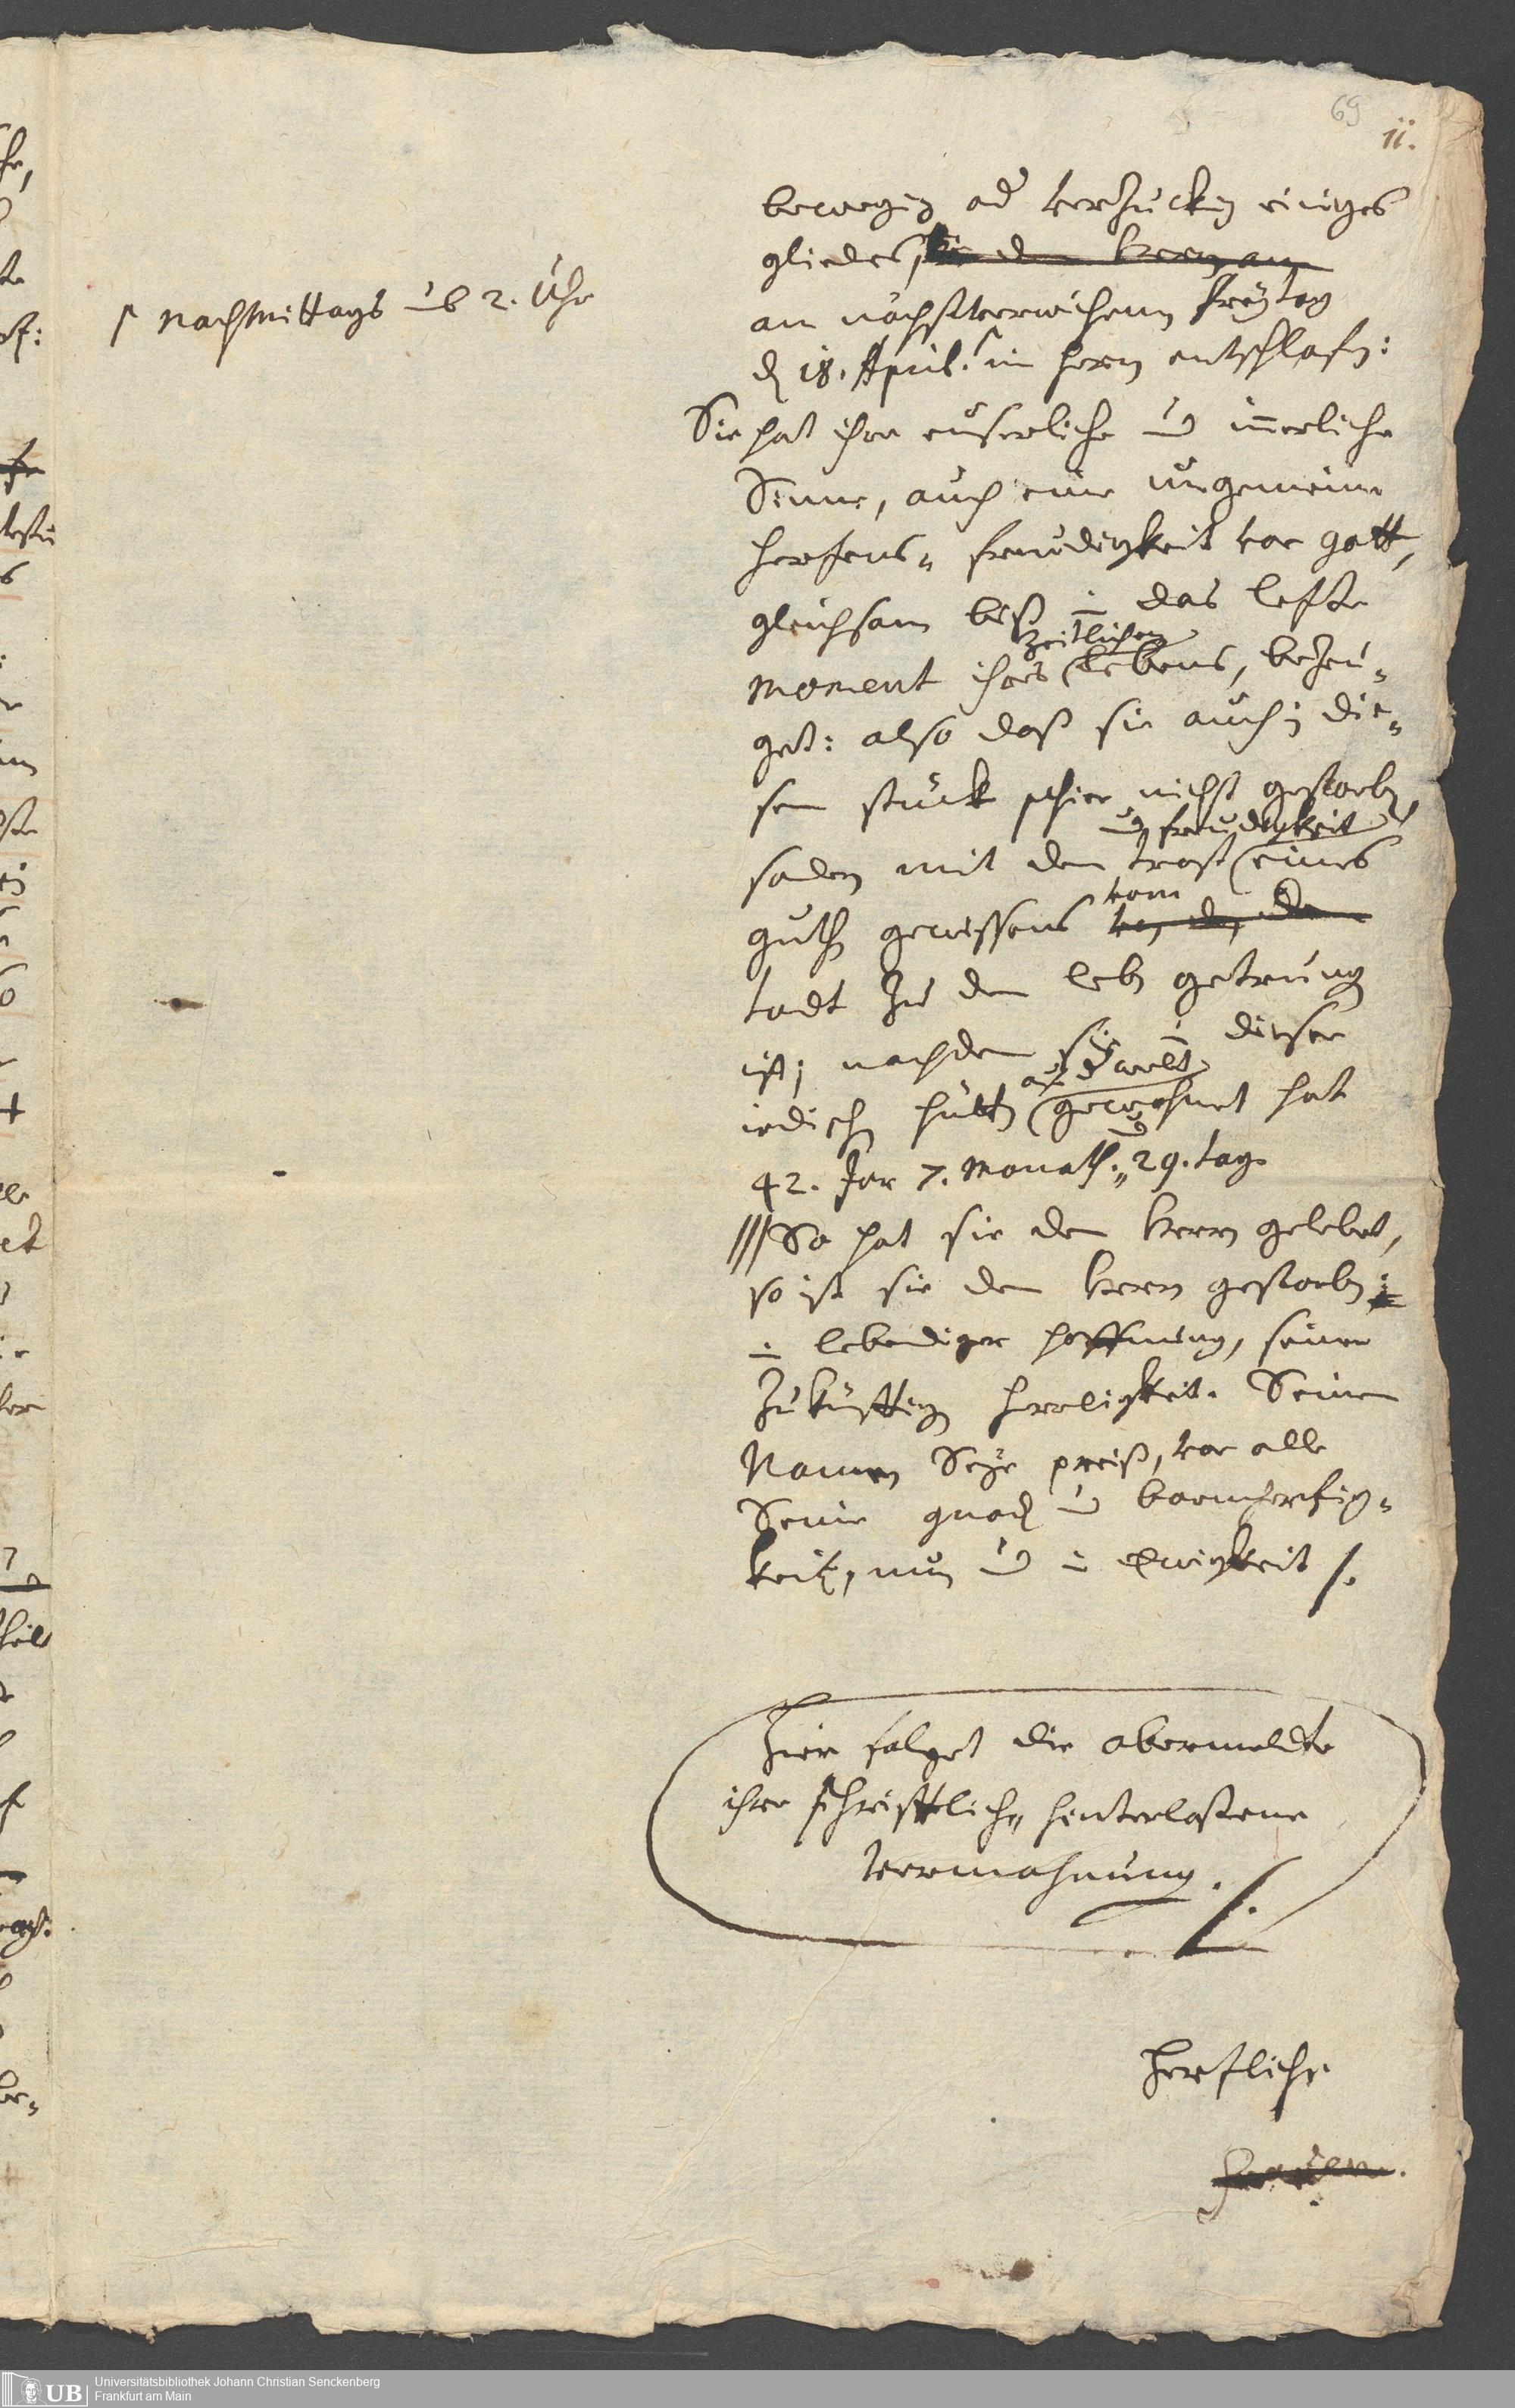 69
11.
bewegen od verzucken einiges
gliedes,
am nächstverwichenen freytag
d 18. April. ⌈ im herrn entschlafen:
⌈ Nachmittags umb 2. Uhr
Sie hat ihre eüserliche und innerliche
Sinne, auch eine ungemeine
herzens- freudigkeit vor Gott,
gleichsam biß in das letzte
zeitlichen
moment ihres lebens, bezeu-
get: also daß sie auch in die-
sem stuck schier nicht gestorben,
und freudigkeit
sondern mit dem trost eines
vom
guten gewissens
todt zu dem leben getrungen
ist; nachdem sie in dieser
auf d welt
irdischen hütten gewohnet hat
42. Jar 7. Monath. und 29. tag.
So hat sie dem herrn gelebet,
so ist sie dem herrn gestorben:
in lebendiger hoffnung, seiner
zukünfftigen herrligkeit. Seinem
Namen Seye preiß, vor alle
Seine gnad und barmherzig-
keit, nun und in Ewigkeit /.
Hier folget die obermeldte
ihre schrifftlich hinterlaßene
Vermahnung. /.
Herzliche
Universitätsbibliothek Johann Christian Senckenberg
Frankfurt am Main
UB